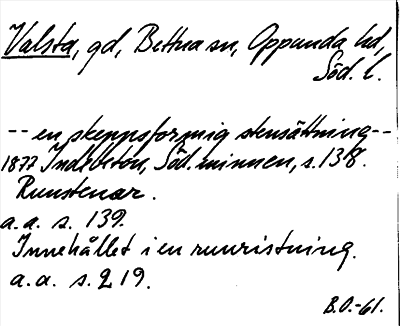 Valsta, gd, Bettna sn, Oppunda hd,
Söd. l.
-- en skeppsformig stensättning --
1877 Indebetou, Söd. minnen, s. 138.
Runstenar.
a. a. s. 139.
Innehållet i en runristning.
a. a. s. 219.
B.O.-61.